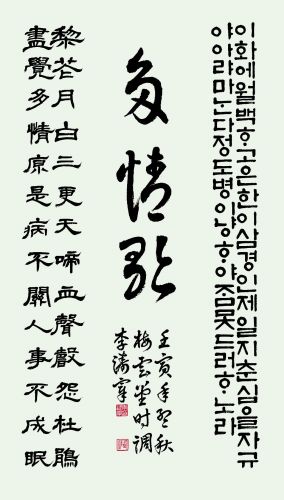 이화에월백ᄒᆞ고은한이삼경인제일지춘심을자규
야아랴마ᄂᆞᆫ다정도병인냥ᄒᆞ야ᄌᆞᆷ못드러ᄒᆞ노라
多情歌
壬寅年秋
梅雲堂时调
李濤
黎花月白三更天啼血聲聲怨杜鵑
盡覺多情原是病不關人事不成眠